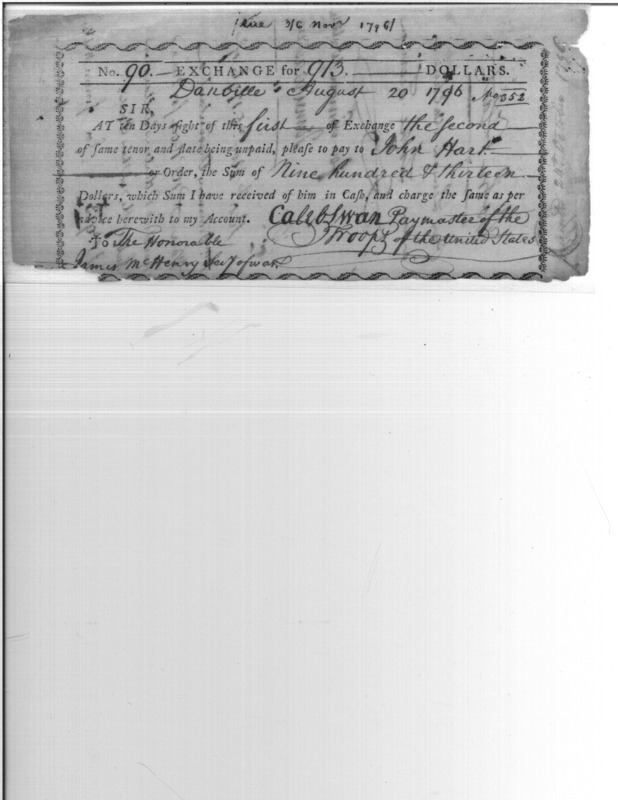 due 3/6 Novr 1796
No. 90. EXCHANGE for 913. DOLLARS.
Danville August 20 1796 No 352
SIR,
AT ten Days sight of this first of Exchange the second
of same tenor and date being unpaid, please to pay to John Hart
or Order, the Sum of Nine hundred & thirteen
Dollars, which Sum I have received of him in Cash, and charge the same as per
advice herewith to my Account. Caleb Swan Paymaster of the
To The Honorable Troops of the United States
James McHenry Secy of war